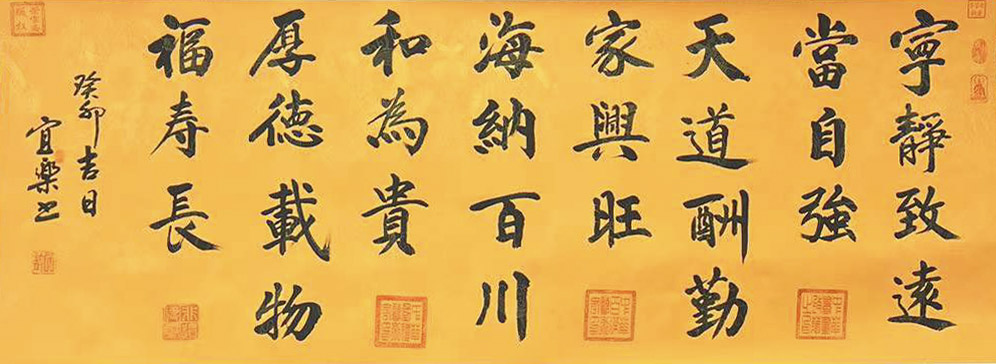 寧靜致遠
當自強
天道酬勤
家興旺
海納百川
和為貴
厚德載物
福寿長
癸卯吉日
宜樂书